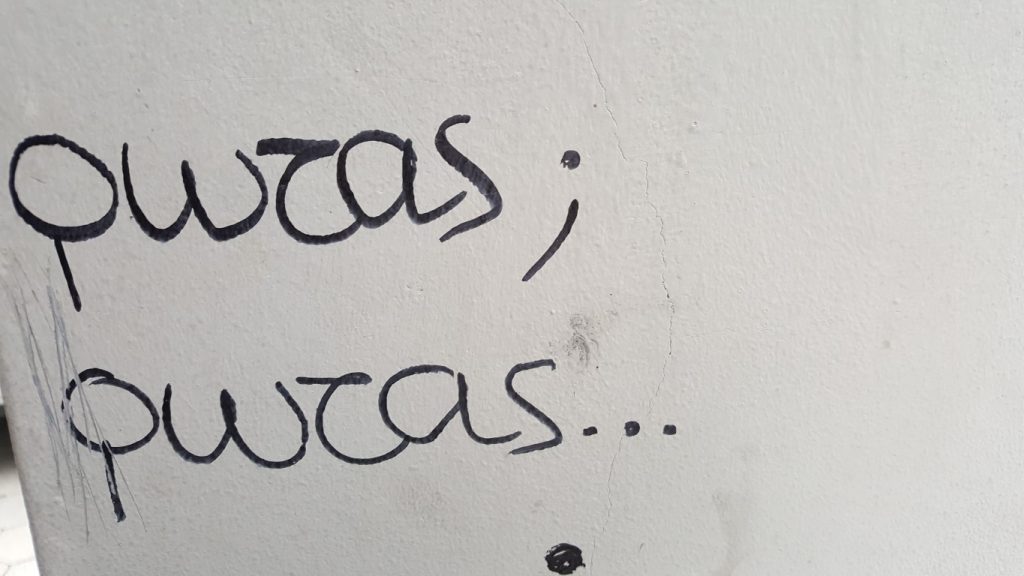 ρωτας;
ρωτας...